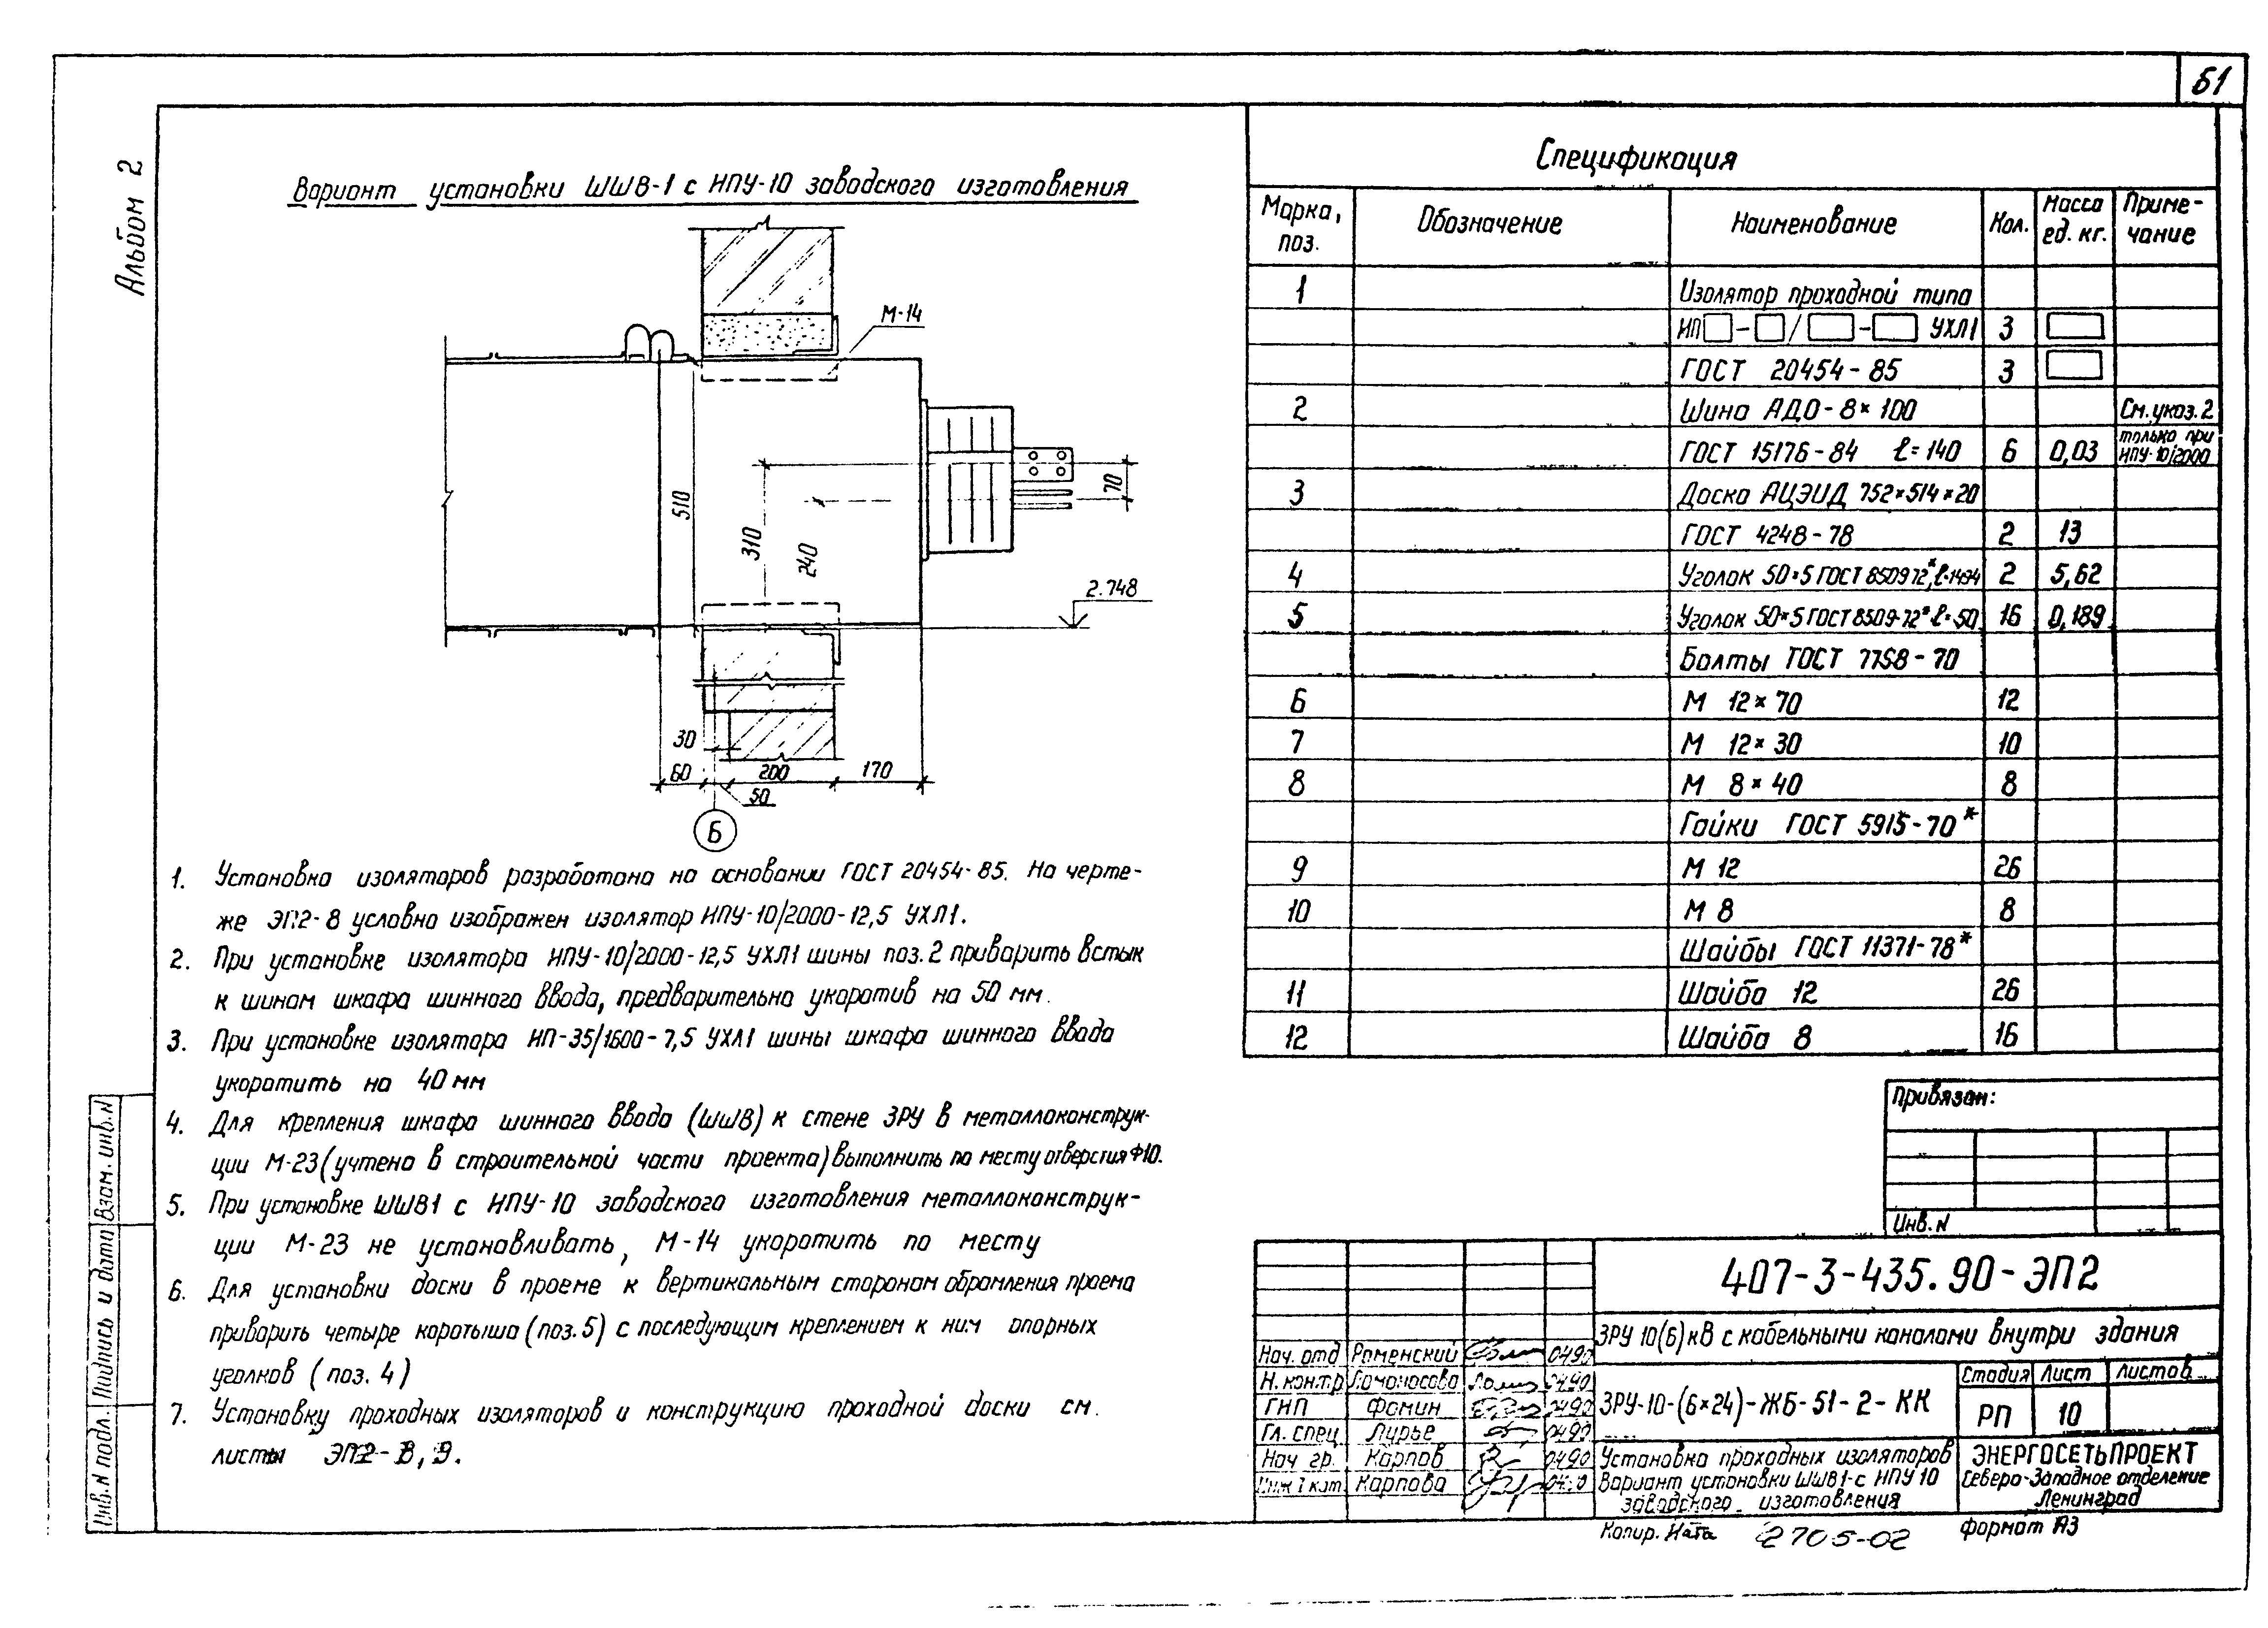 61
Альбом 2
Вариант установки ШШВ-1 с ИПУ-10 заводского изготовления
М-14
510
310
240
70
2.748
30
60
200
170
50
Б
1. Установка изоляторов разработана на основании ГОСТ 20454-85. На черте-
же ЭП2-8 условно изображен изолятор ИПУ-10/2000-12,5 УХЛ1.
2. При установке изолятора ИПУ-10/2000-12,5 УХЛ1 шины поз.2 приварить встык
к шинам шкафа шинного ввода, предварительно укоротив на 50 мм.
3. При установке изолятора ИП-35/1600-7,5 УХЛ1 шины шкафа шинного ввода
укоротить на 40 мм
4. Для крепления шкафа шинного ввода (ШШВ) к стене ЗРУ в металлоконструк-
ции М-23 (учтена в строительной части проекта) выполнить по месту отверстия Ф10.
5. При установке ШШВ1 с ИПУ-10 заводского изготовления металлоконструк-
ции М-23 не устанавливать, М-14 укоротить по месту
6. Для установки доски в проеме к вертикальным сторонам обрамления проема
приварить четыре коротыша (поз.5) с последующим креплением к ним опорных
уголков (поз.4)
7. Установку проходных изоляторов и конструкцию проходной доски см.
листы ЭП2-8, 9.
Спецификация
Марка, поз. Обозначение Наименование Кол. Масса ед. кг. Приме-чание
1 Изолятор проходной типа
ИП□-□/□-□ УХЛ1 3 □
ГОСТ 20454-85 3 □
2 Шина АДО-8×100 См. указ. 2
ГОСТ 15176-84 ℓ=140 6 0,03 только при ИПУ-10/2000
3 Доска АЦЭИД 752×514×20
ГОСТ 4248-78 2 13
4 Уголок 50×5 ГОСТ 8509-72*, ℓ=1494 2 5,62
5 Уголок 50×5 ГОСТ 8509-72* ℓ=50 16 0,189
Болты ГОСТ 7798-70
6 М 12×70 12
7 М 12×30 10
8 М 8×40 8
Гайки ГОСТ 5915-70*
9 М 12 26
10 М 8 8
Шайбы ГОСТ 11371-78*
11 Шайба 12 26
12 Шайба 8 16
Привязан:
Инв. N
407-3-435.90-ЭП2
ЗРУ 10(6) кВ с кабельными каналами внутри здания
Нач. отд Роменский 0490
Н. контр Ломоносова 0490
ГИП Фомин 0490
Гл. спец. Лурье 0490
Нач. гр. Карпов 0490
Инж I кат. Карпова 0490
ЗРУ-10-(6×24)-ЖБ-51-2-КК
Стадия Лист Листов
РП 10
Установка проходных изоляторов
Вариант установки ШШВ1-с ИПУ 10
заводского изготовления
ЭНЕРГОСЕТЬПРОЕКТ
Северо-Западное отделение
Ленинград
Копир. Ната 2705-02 формат А3
Инв. N подл. Подпись и дата Взам. инв. N